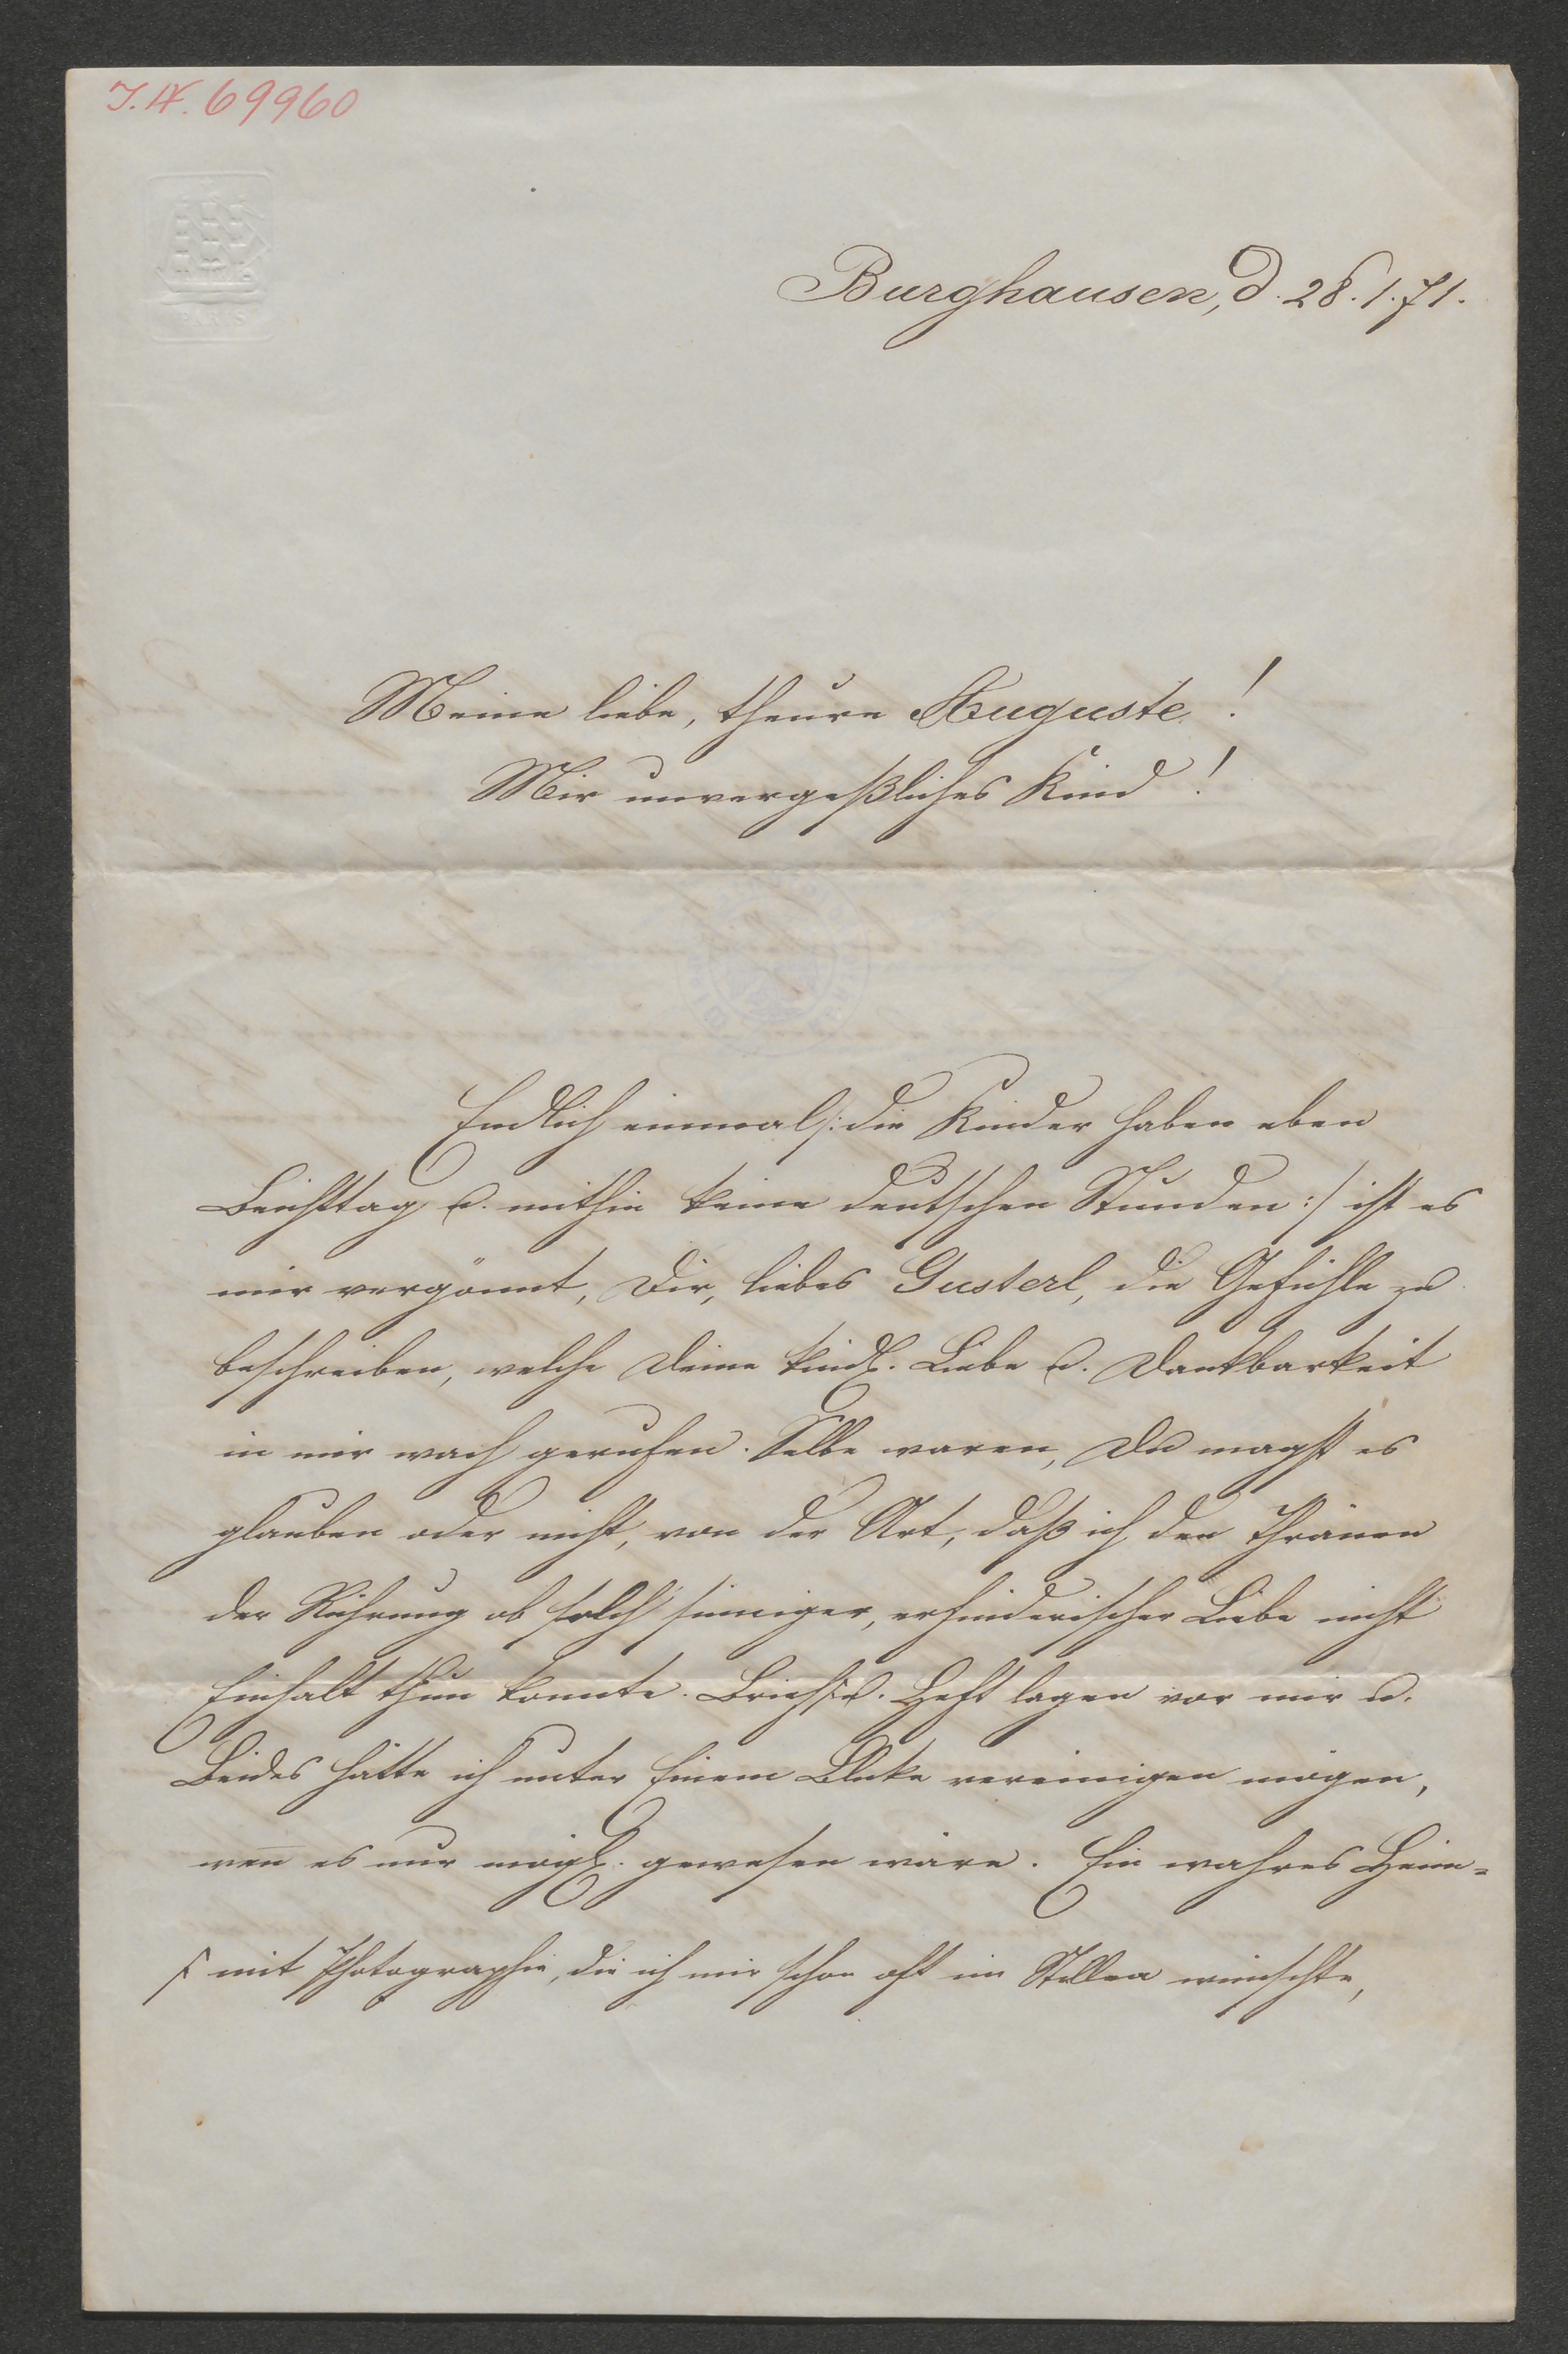 I. N. 69960
Burghausen, d. 28.1.71.
Meine liebe, theure Auguste!
Mir unvergeßliches Kind!
Endlich einmal /: die Kinder haben eben
Beichttag u. mithin keine deutschen Stunden :/ ist es
mir vergönnt, Dir, liebes Gusterl, die Gefühle zu
beschreiben, welche Deine kindl. Liebe u. Dankbarkeit
in mir wach gerufen. Selbe waren, Du magst es
glauben oder nicht, von der Art, daß ich den Thränen
der Rührung ob solch' sinniger, erfinderischer Liebe nicht
Einhalt thun konnte. Brief u. Heft lagen vor mir u.
Beides hätte ich unter Einem Blicke vereinigen mögen,
wen̅ es nur mögl. gewesen wäre. Ein wahres Heim-
mit Photographie, die ich mir schon oft im Stillen wünschte,